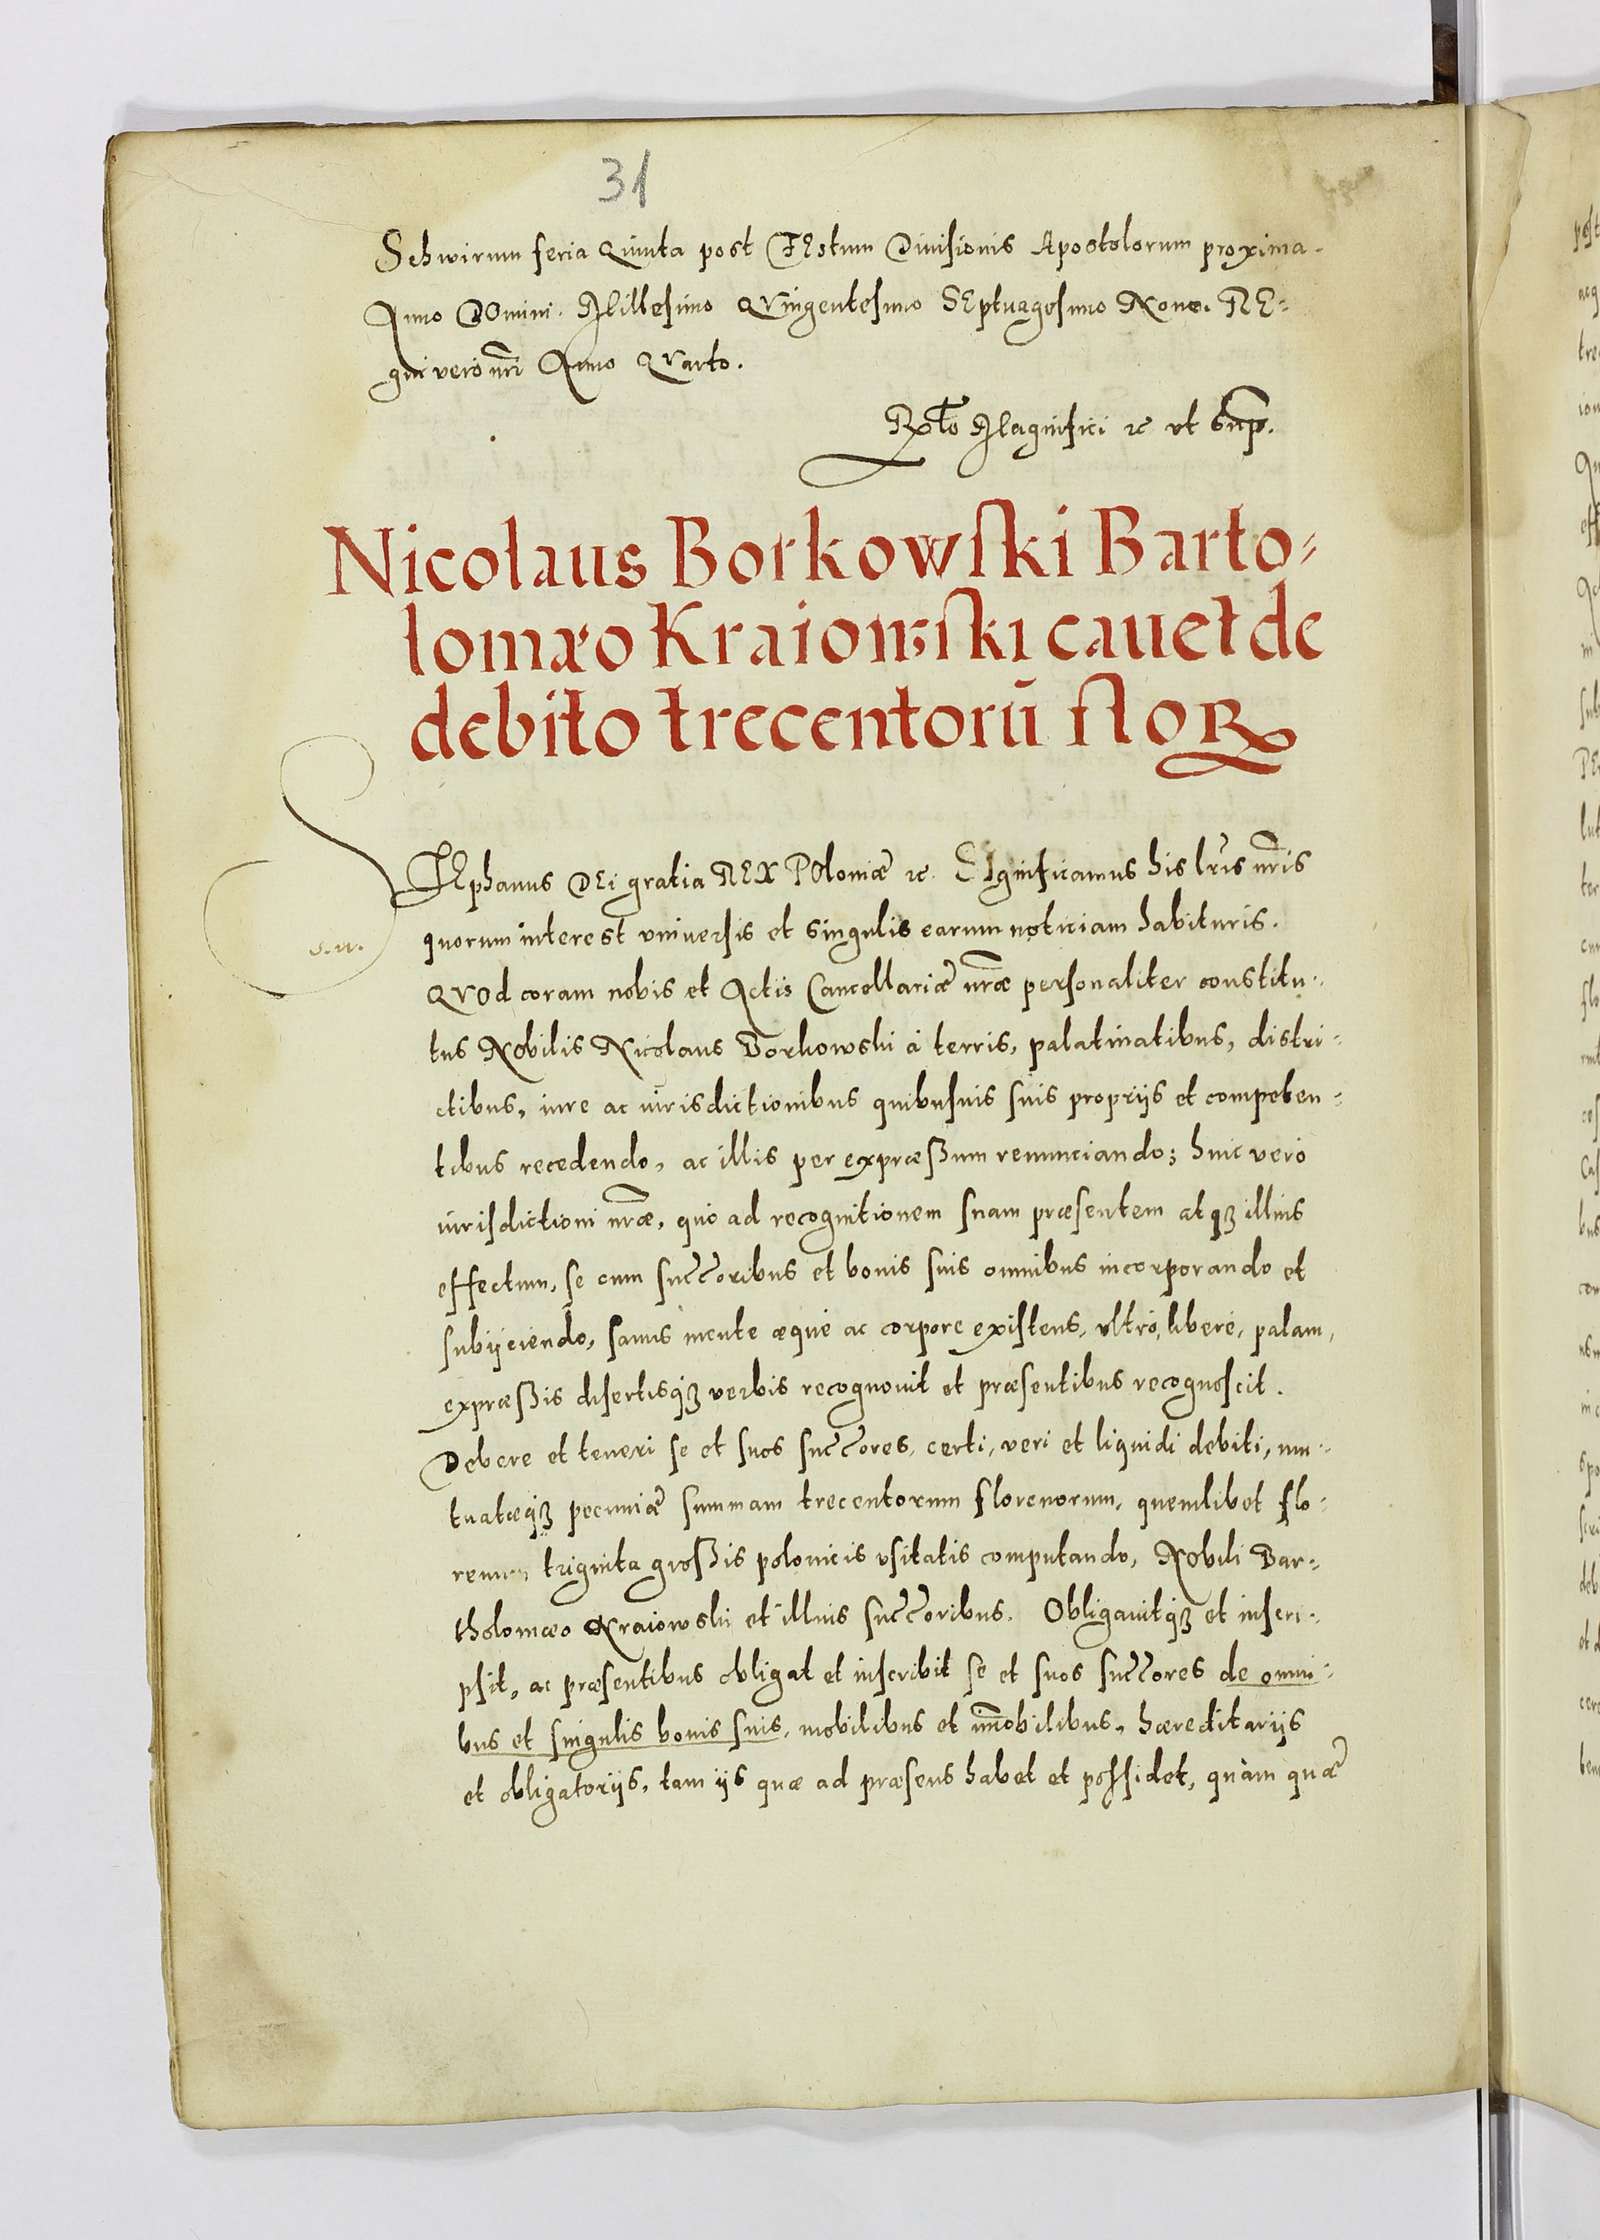 31
Schwirum feria Quinta post FEstum Diuisionis Apostolorum proxima.
Anno DOmini. Millesimo QVingentesimo SEptuagesimo Nono. RE-
gni vero nr̃i Anno QVarto.
Rtō Magnifici ꝛc vt sup̃.
Nicolaus Borkowſki Barto-
lomæo Kraiowſki cauet de
debito trecentorū floꝜ
STEphanus DEi gratia REX POloniæ ꝛc. SIgnificamus his lr̃is nr̃is
s.n.
quorum interest vniuerſis et singulis earum noticiam habituris.
QVOd coram nobis et Actis Cancellariæ nr̃æ perſonaliter constitu-
tus Nobilis Nicolaus Borkowski à terris, palatinatibus, distri-
ctibus, iure ac iurisdictionibus quibuſuis ſuis proprijs et competen-
tibus recedendo, ac illis per expræßum renunciando; huic vero
iuriſdictioni nr̃æ, quo ad recognitionem ſuam præſentem atqꝫ illius
effectum, ſe cum ſuc̃c̃oribus et bonis ſuis omnibus incorporando et
ſubijciendo, ſanus mente æque ac corpore exiſtens, vltrò, liberè, palam,
expræßis diſertisqꝫ verbis recognouit et præſentibus recognoſcit.
Debere et teneri ſe et ſuos ſuc̃c̃ores, certi, veri et liquidi debiti, mu-
tuatæqꝫ pecuniæ ſummam trecentorum florenorum, quemlibet flo-
renum triginta großis polonicis vſitatis computando, Nobili Bar-
tholomæo Kraiowski et illius ſuc̃c̃oribus. Obligauitqꝫ et inſcri-
pſit, ac præſentibus obligat et inſcribit ſe et ſuos ſuc̃c̃ores de omni-
bus et ſingulis bonis ſuis, mobilibus et im̃obilibus, hæreditarijs
et obligatorijs, tam ijs quæ ad præſens habet et poſſidet, quàm quæ